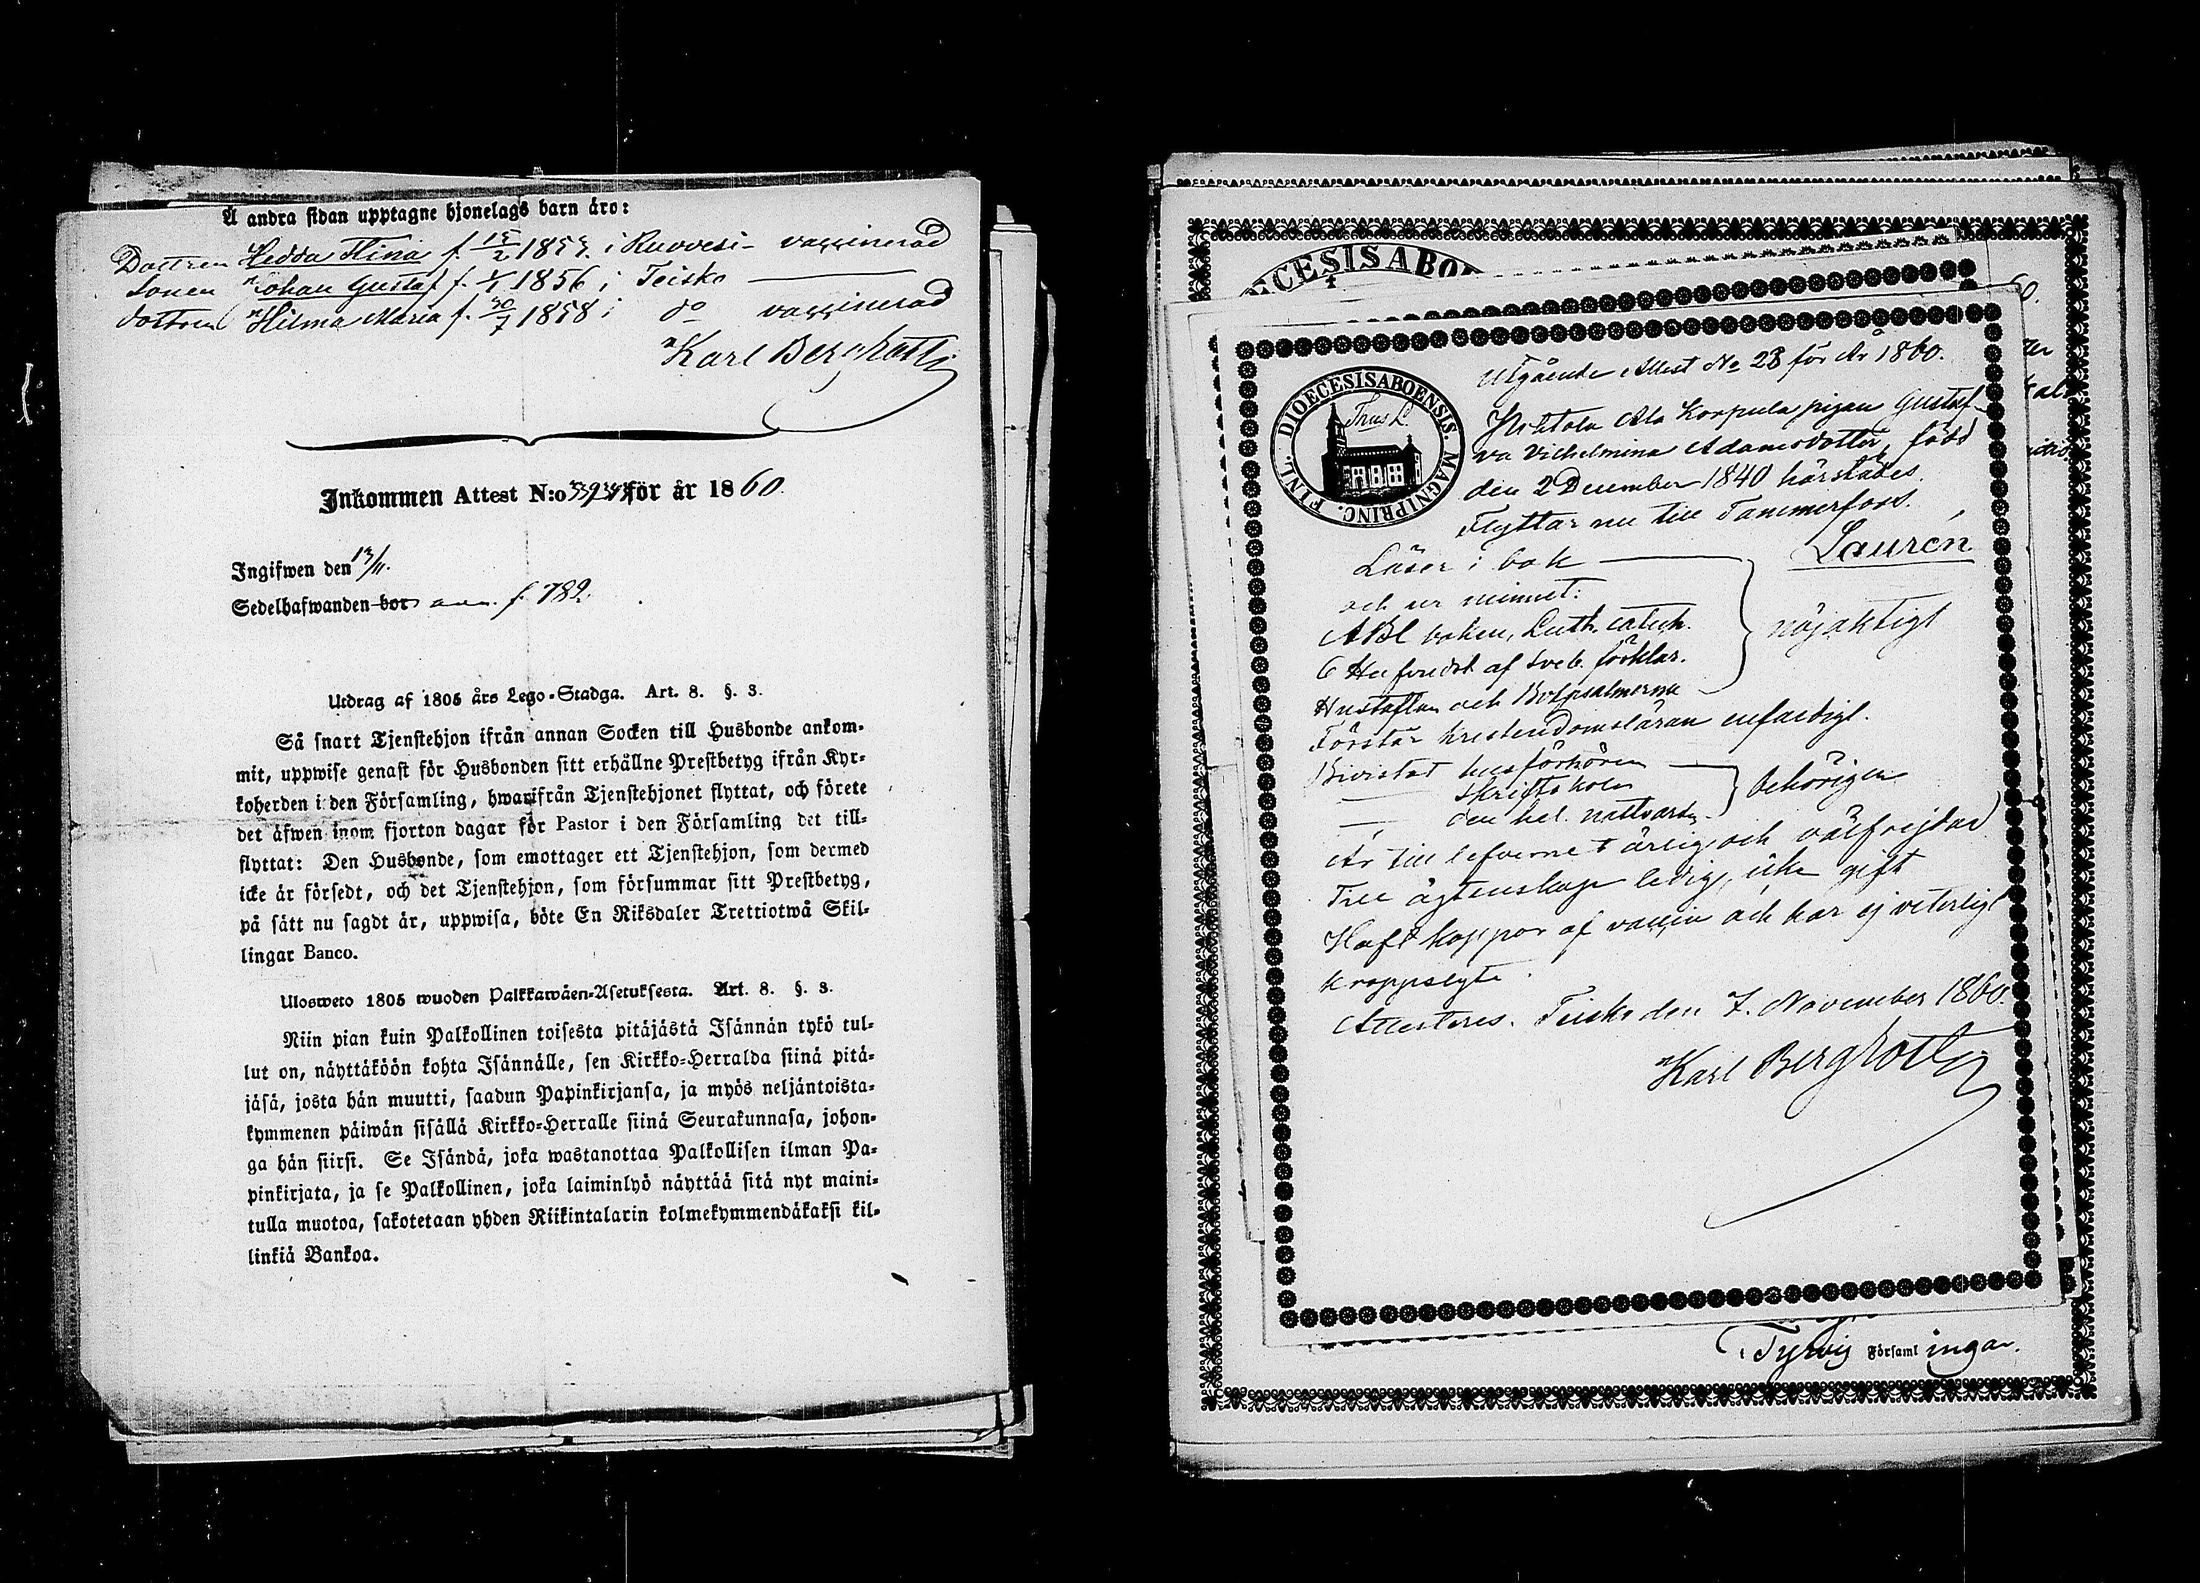 Å andra sidan upptagne hjonelags barn äro:
Dottren Hedda Stina f. 15/2 1853. i Ruovesi - vaxxinerad
Sonen Johan Gustaf f. 1/1 1856 i Teisko
dottren Hilma Maria f. 30/7 1858 i do vaxxinerad
Karl Bergroth
Inkommen Attest N:o för år 1860.
Ingifwen den 13/11.
Sedelhafwanden bor ann. f. 782.
Utdrag af 1805 års Lego-Stadga. Art. 8. §. 3.
Så snart Tjenstehjon ifrån annan Socken till Husbonde ankom-
mit, uppwise genast för Husbonden sitt erhållne Prestbetyg ifrån Kyr-
koherden i den Församling, hwarifrån Tjenstehjonet flyttat, och förete
det äfwen inom fjorton dagar för Pastor i den Församling det till-
flyttat: Den Husbonde, som emottager ett Tjenstehjon, som dermed
icke är försedt, och det Tjenstehjon, som försummar sitt Prestbetyg,
på sätt nu sagdt är, uppwisa, böte En Riksdaler Trettiotwå Skil-
lingar Banco.
Ulosweto 1805 wuoden Palkkawäen-Asetuksesta. Art. 8. §. 3.
Niin pian kuin Palkollinen toisesta pitäjästä Isännän tykö tul-
lut on, näyttäköön kohta Isännälle, sen Kirkko-Herralda siinä pitä-
jäsä, josta hän muutti, saadun Papinkirjansa, ja myös neljäntoista-
kymmenen päiwän sisällä Kirkko-Herralle siinä Seurakunnasa, johon-
ga hän siirsi. Se Isändä, joka wastanottaa Palkollisen ilman Pa-
pinkirjata, ja se Palkollinen, joka laiminlyö näyttää sitä nyt maini-
tulla muotoa, sakotetaan yhden Riikintalarin kolmekymmendäkaksi kil-
linkiä Bankoa.
ECESIS ABO
DIOECESIS ABOENSIS. MAGNI PRINC. FINL.
Utgående Attest No 28 för År 1860.
Ala Korpula pigan Gustaf-
va Vilhelmina Adamsdotter, född
den 2 December 1840 härstädes.
Flyttar nu till Tammerfors.
Laurén
Läser i bok
och ur minnet:
ABC boken, Luth. catech.
6 Hufvudst af Sveb. förklar. nöjaktigt
Hustaflan och Botpsalmerna
Förstår kristendomsläran enfaldigt.
Bivistat husförhören
skriftskolen behörigen
den hel. nattvarden
Är till lefvernet ärlig och välfrejdad
Till ägtenskap ledig, icke gift
Haft koppor af vaccin och har ej veterligt
kroppslyte.
Attesteras. Teisko den 7. November 1860.
Karl Bergroth
Tyrvis Församlingar.